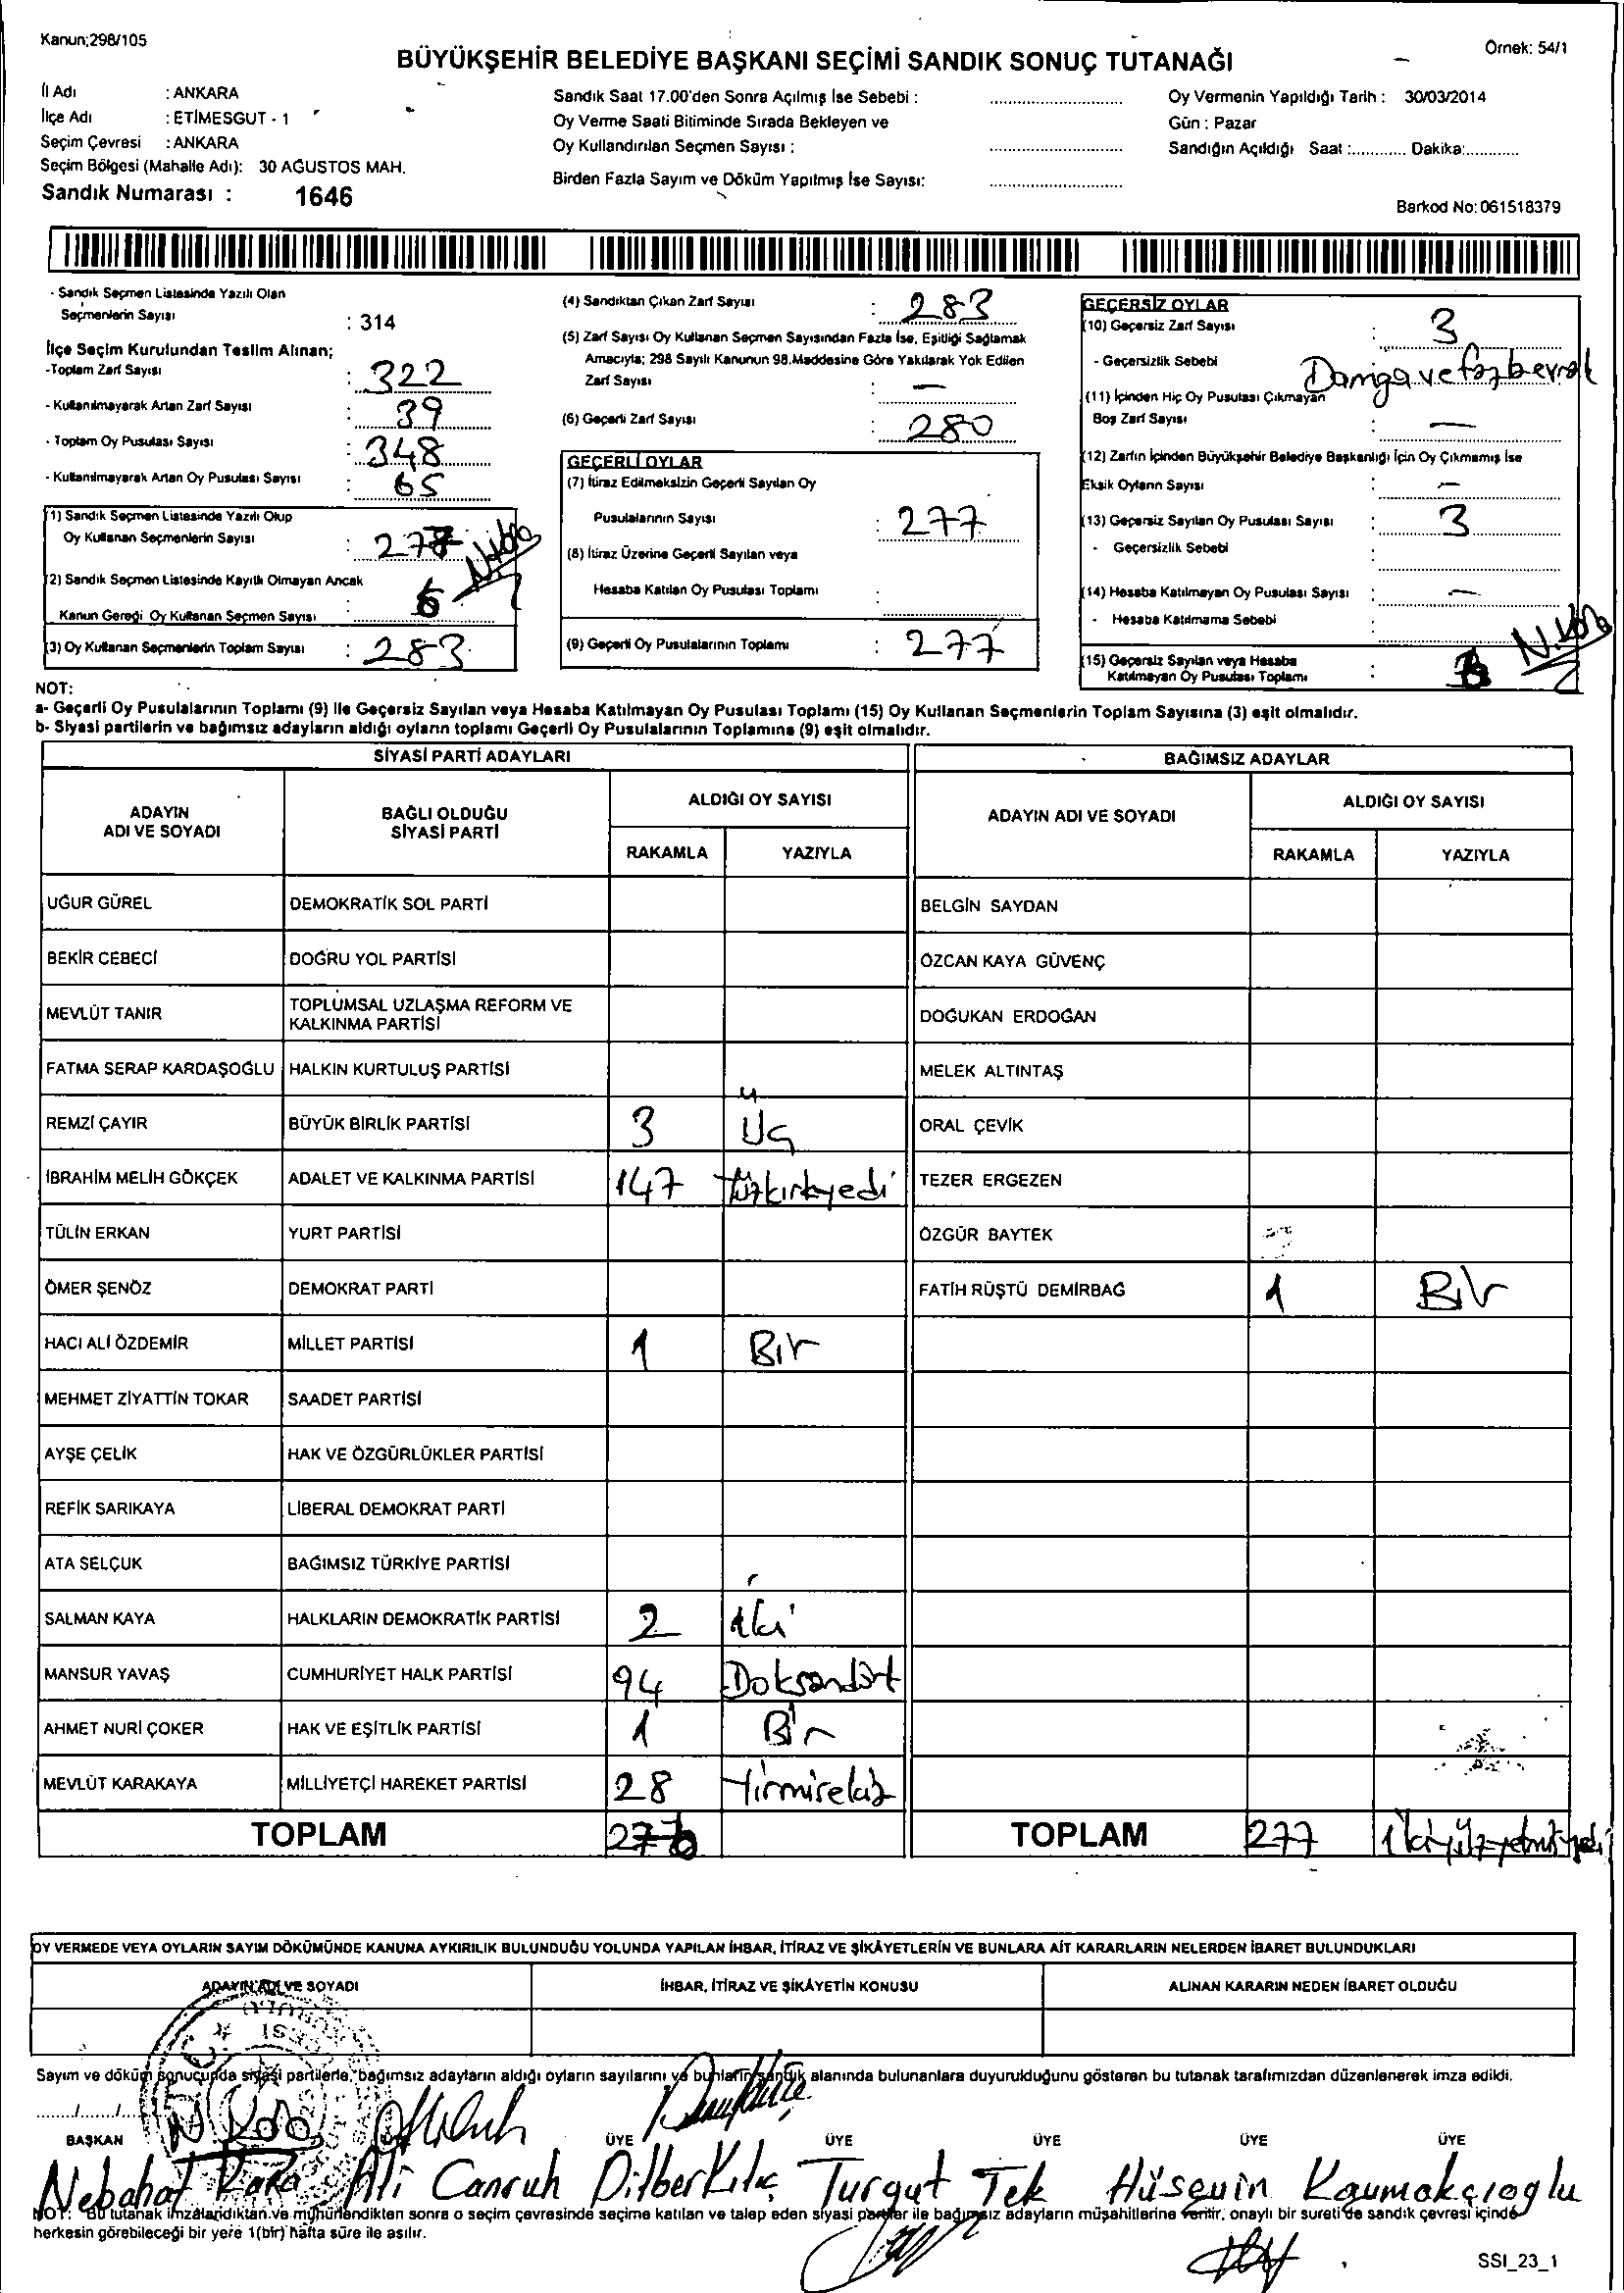 Kanun;298/105
Örnek: 54/1
BÜYÜKŞEHİR BELEDİYE BAŞKANI SEÇİMİ SANDIK SONUÇ TUTANAĞI
İl Adı : ANKARA
İlçe Adı : ETİMESGUT - 1
Seçim Çevresi : ANKARA
Seçim Bölgesi (Mahalle Adı): 30 AĞUSTOS MAH.
Sandık Numarası : 1646
Sandık Saat 17.00'den Sonra Açılmış İse Sebebi :
Oy Verme Saati Bitiminde Sırada Bekleyen ve
Oy Kullandırılan Seçmen Sayısı :
Birden Fazla Sayım ve Döküm Yapılmış İse Sayısı:
Oy Vermenin Yapıldığı Tarih : 30/03/2014
Gün : Pazar
Sandığın Açıldığı Saat :............ Dakika:............
Barkod No:061518379
- Sandık Seçmen Listesinde Yazılı Olan
Seçmenlerin Sayısı : 314
İlçe Seçim Kurulundan Teslim Alınan;
-Toplam Zarf Sayısı : 322
- Kullanılmayarak Artan Zarf Sayısı : 39
- Toplam Oy Pusulası Sayısı : 348
- Kullanılmayarak Artan Oy Pusulası Sayısı : 65
(1) Sandık Seçmen Listesinde Yazılı Olup
Oy Kullanan Seçmenlerin Sayısı :
(2) Sandık Seçmen Listesinde Kayıtlı Olmayan Ancak
Kanun Gereği Oy Kullanan Seçmen Sayısı :
(3) Oy Kullanan Seçmenlerin Toplam Sayısı : 283
(4) Sandıktan Çıkan Zarf Sayısı : 283
(5) Zarf Sayısı Oy Kullanan Seçmen Sayısından Fazla İse, Eşitliği Sağlamak
Amacıyla; 298 Sayılı Kanunun 98.Maddesine Göre Yakılarak Yok Edilen
Zarf Sayısı : —
(6) Geçerli Zarf Sayısı : 280
GEÇERLİ OYLAR
(7) İtiraz Edilmeksizin Geçerli Sayılan Oy
Pusulalarının Sayısı : 277
(8) İtiraz Üzerine Geçerli Sayılan veya
Hesaba Katılan Oy Pusulası Toplamı :
(9) Geçerli Oy Pusulalarının Toplamı : 277
GEÇERSİZ OYLAR
(10) Geçersiz Zarf Sayısı : 3
- Geçersizlik Sebebi Damga ve
(11) İçinden Hiç Oy Pusulası Çıkmayan
Boş Zarf Sayısı : —
(12) Zarfın İçinden Büyükşehir Belediye Başkanlığı İçin Oy Çıkmamış İse
Eksik Oyların Sayısı : —
(13) Geçersiz Sayılan Oy Pusulası Sayısı : 3
- Geçersizlik Sebebi
(14) Hesaba Katılmayan Oy Pusulası Sayısı : —
- Hesaba Katılmama Sebebi
(15) Geçersiz Sayılan veya Hesaba
Katılmayan Oy Pusulası Toplamı :
NOT:
a- Geçerli Oy Pusulalarının Toplamı (9) İle Geçersiz Sayılan veya Hesaba Katılmayan Oy Pusulası Toplamı (15) Oy Kullanan Seçmenlerin Toplam Sayısına (3) eşit olmalıdır.
b- Siyasi partilerin ve bağımsız adayların aldığı oyların toplamı Geçerli Oy Pusulalarının Toplamına (9) eşit olmalıdır.
SİYASİ PARTİ ADAYLARI
BAĞIMSIZ ADAYLAR
ADAYIN
ADI VE SOYADI
BAĞLI OLDUĞU
SİYASİ PARTİ
ALDIĞI OY SAYISI
RAKAMLA YAZIYLA
ADAYIN ADI VE SOYADI
ALDIĞI OY SAYISI
RAKAMLA YAZIYLA
UĞUR GÜREL DEMOKRATİK SOL PARTİ BELGİN SAYDAN
BEKİR CEBECİ DOĞRU YOL PARTİSİ ÖZCAN KAYA GÜVENÇ
MEVLÜT TANIR TOPLUMSAL UZLAŞMA REFORM VE
KALKINMA PARTİSİ DOĞUKAN ERDOĞAN
FATMA SERAP KARDAŞOĞLU HALKIN KURTULUŞ PARTİSİ MELEK ALTINTAŞ
REMZİ ÇAYIR BÜYÜK BİRLİK PARTİSİ 3 Üç ORAL ÇEVİK
İBRAHİM MELİH GÖKÇEK ADALET VE KALKINMA PARTİSİ 147 Yüzkırkyedi TEZER ERGEZEN
TÜLİN ERKAN YURT PARTİSİ ÖZGÜR BAYTEK
ÖMER ŞENÖZ DEMOKRAT PARTİ FATİH RÜŞTÜ DEMİRBAĞ 1 Bir
HACI ALİ ÖZDEMİR MİLLET PARTİSİ 1 Bir
MEHMET ZİYATTİN TOKAR SAADET PARTİSİ
AYŞE ÇELİK HAK VE ÖZGÜRLÜKLER PARTİSİ
REFİK SARIKAYA LİBERAL DEMOKRAT PARTİ
ATA SELÇUK BAĞIMSIZ TÜRKİYE PARTİSİ
SALMAN KAYA HALKLARIN DEMOKRATİK PARTİSİ 2 iki
MANSUR YAVAŞ CUMHURİYET HALK PARTİSİ 94 Doksandört
AHMET NURİ ÇOKER HAK VE EŞİTLİK PARTİSİ 1 Bir
MEVLÜT KARAKAYA MİLLİYETÇİ HAREKET PARTİSİ 28 Yirmisekiz
TOPLAM 276 TOPLAM 277 ikiyüzyetmişyedi
OY VERMEDE VEYA OYLARIN SAYIM DÖKÜMÜNDE KANUNA AYKIRILIK BULUNDUĞU YOLUNDA YAPILAN İHBAR, İTİRAZ VE ŞİKÂYETLERİN VE BUNLARA AİT KARARLARIN NELERDEN İBARET BULUNDUKLARI
ADAYIN ADI VE SOYADI İHBAR, İTİRAZ VE ŞİKÂYETİN KONUSU ALINAN KARARIN NEDEN İBARET OLDUĞU
Sayım ve döküm sonucunda siyasi partilerle, bağımsız adayların aldığı oyların sayılarını ve bunların sandık alanında bulunanlara duyurulduğunu gösteren bu tutanak tarafımızdan düzenlenerek imza edildi.
......./......./.....
BAŞKAN ÜYE ÜYE ÜYE ÜYE ÜYE
Nebahat Kara Ali Canruh Dilber Kılıç Turgut Tek Hüseyin Kaymakçıoğlu
NOT: Bu tutanak imzalandıktan ve mühürlendikten sonra o seçim çevresinde seçime katılan ve talep eden siyasi partiler ile bağımsız adayların müşahitlerine verilir, onaylı bir sureti de sandık çevresi içinde
herkesin görebileceği bir yere 1(bir) hafta süre ile asılır.
SSI_23_1